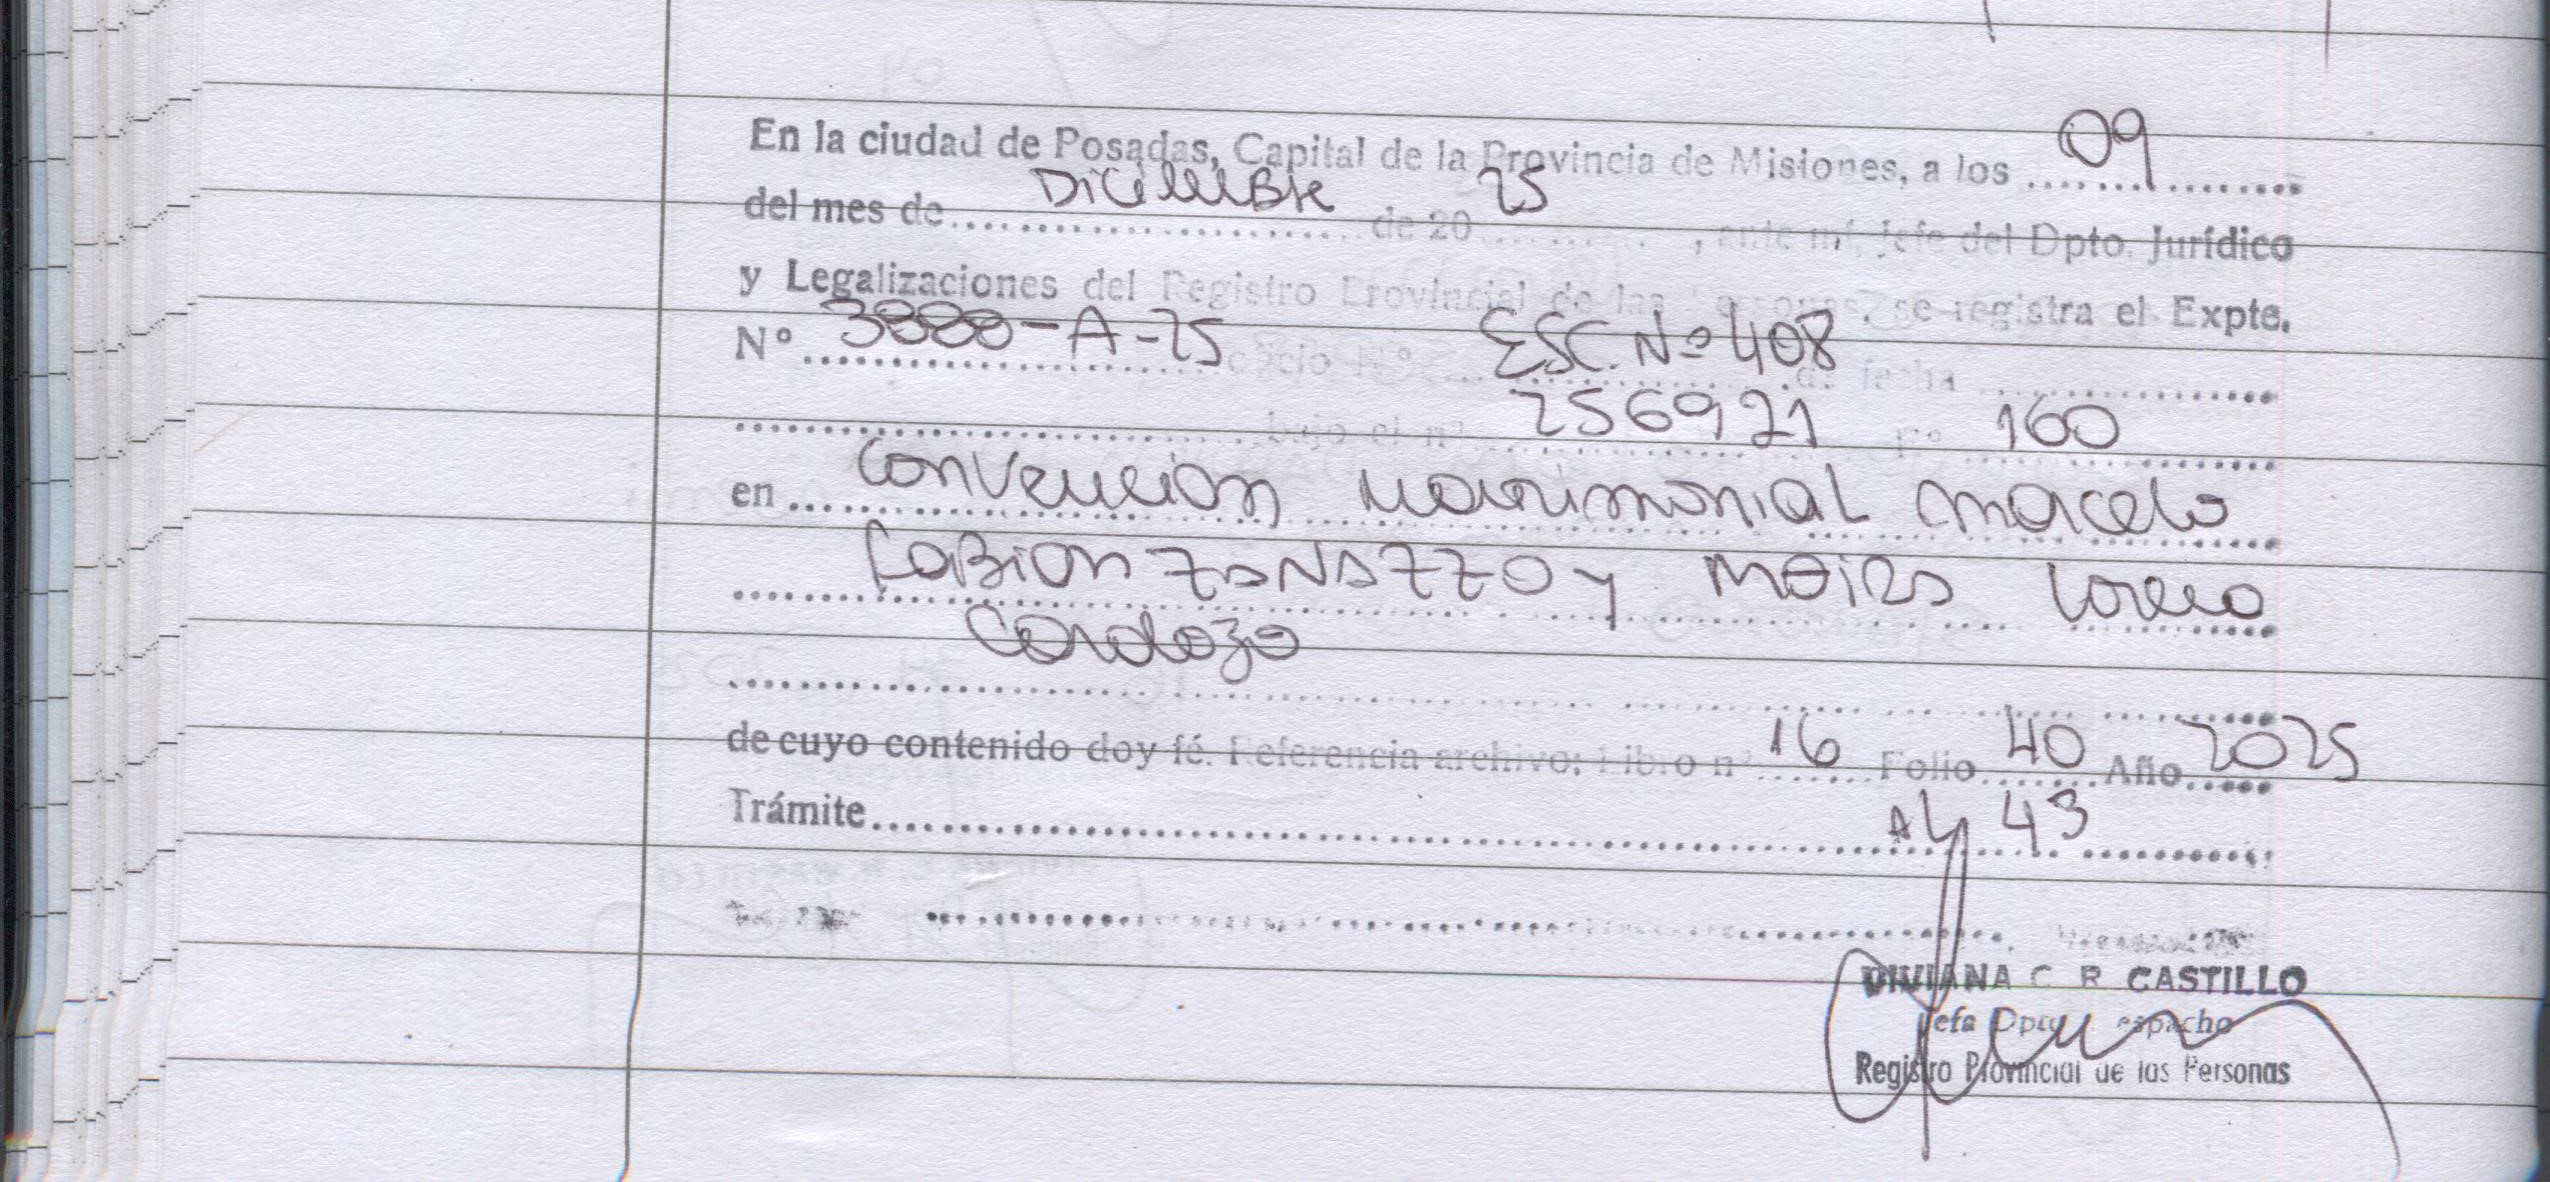 En la ciudad de Posadas, Capital de la Provincia de Misiones, a los 09
del mes de Diciembre de 20 25, ante mí, Jefe del Dpto. Jurídico
y Legalizaciones del Registro Provincial de las Personas, se registra el Expte.
Nº 3888-A-25 oficio Nº ESC. Nº 408 de fecha
bajo el nº 256921 Fº 160
en Convención Matrimonial Marcelo
Fabian ZANAZZO y Maira Lorena
Cardozo
de cuyo contenido doy fé. Referencia archivo: Libro nº 16 Folio 40 Año 2025
Trámite AL 43
VIVIANA C. R. CASTILLO
Jefa Dpto. Despacho
Registro Provincial de las Personas